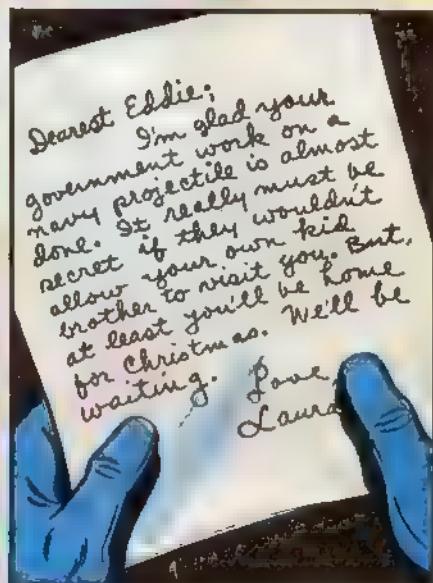 Dearest Eddie;
I'm glad your
government work on a
navy projectile is almost
done. It really must be
secret if they wouldn't
allow your own kid
brother to visit you. But,
at least you'll be home
for Christmas. We'll be
waiting. Love,
Laura